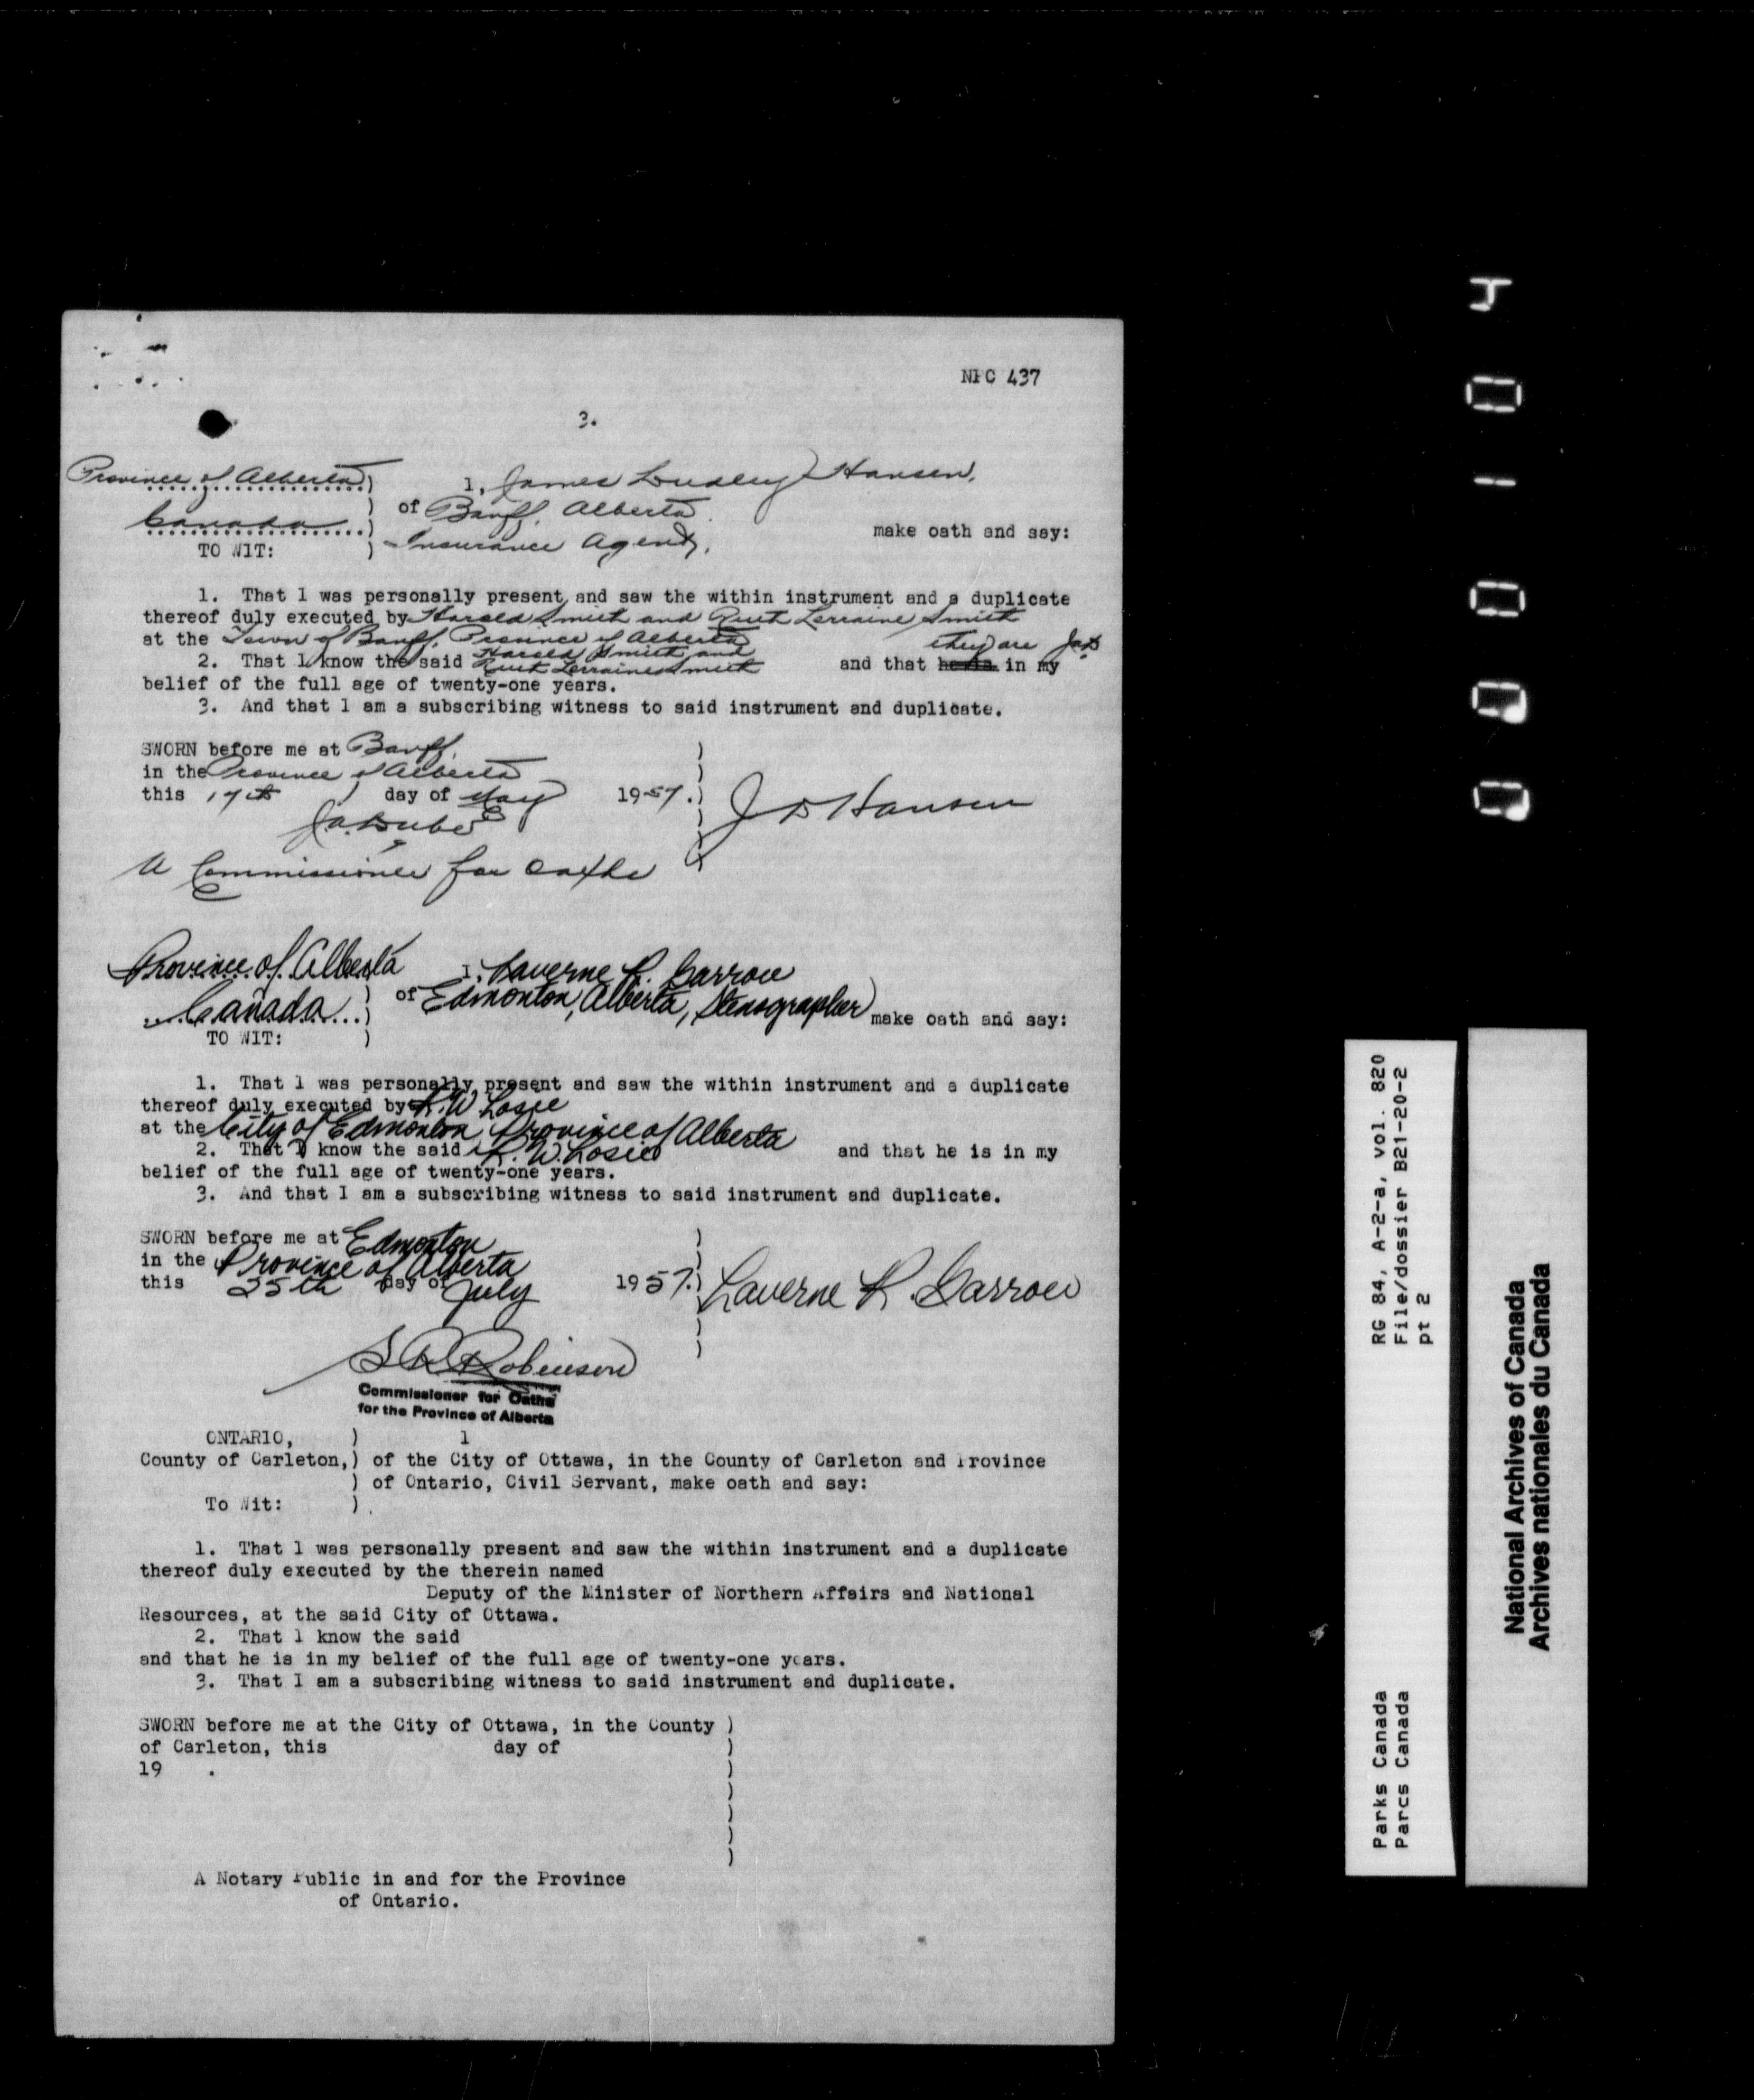 NPC 437
3.
Province of Alberta ) I, James Dudley Hansen,
Canada ) of Banff, Alberta make oath and say:
TO WIT: ) Insurance Agent,
1. That I was personally present and saw the within instrument and a duplicate
thereof duly executed by Harold Smith and Ruth Lorraine Smith
at the Town of Banff, Province of Alberta they are
2. That I know the said Harold Smith and Ruth Lorraine Smith and that he is in my
belief of the full age of twenty-one years.
3. And that I am a subscribing witness to said instrument and duplicate.
SWORN before me at Banff,
in the Province of Alberta
this 17th day of May 1957. ) J D Hansen
A Commissioner for Oaths
Province of Alberta I, Laverne R. Garrow
Canada ) of Edmonton, Alberta, Stenographer make oath and say:
TO WIT: )
1. That I was personally present and saw the within instrument and a duplicate
thereof duly executed by W. Losie
at the City of Edmonton, Province of Alberta
2. That I know the said W. Losie and that he is in my
belief of the full age of twenty-one years.
3. And that I am a subscribing witness to said instrument and duplicate.
SWORN before me at Edmonton
in the Province of Alberta
this 25th day of July 1957. ) Laverne R. Garrow
Robinson
Commissioner for Oaths
for the Province of Alberta
ONTARIO, ) I
County of Carleton,) of the City of Ottawa, in the County of Carleton and Province
) of Ontario, Civil Servant, make oath and say:
To Wit: )
1. That I was personally present and saw the within instrument and a duplicate
thereof duly executed by the therein named
Deputy of the Minister of Northern Affairs and National
Resources, at the said City of Ottawa.
2. That I know the said
and that he is in my belief of the full age of twenty-one years.
3. That I am a subscribing witness to said instrument and duplicate.
SWORN before me at the City of Ottawa, in the County )
of Carleton, this day of )
19 . )
A Notary Public in and for the Province
of Ontario.
Parks Canada RG 84, A-2-a, vol. 820
Parcs Canada File/dossier B21-20-2
pt 2
National Archives of Canada
Archives nationales du Canada